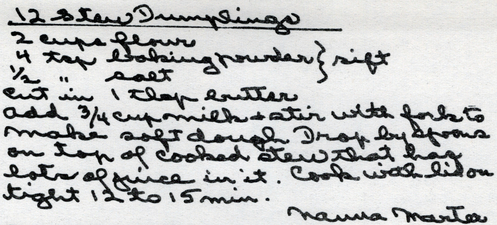 12 Stew Dumplings
2 cups flour
4 tsp baking powder } sift
1/2 " salt
cut in 1 tbsp butter
add 3/4 cup milk + stir with fork to
make soft dough Drop by spoons
on top of cooked stew that has
lots of juice in it. Cook with lid on
tight 12 to 15 min.
Nanna